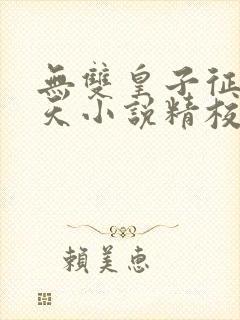 無雙皇子征
天小說精校
賴美惠